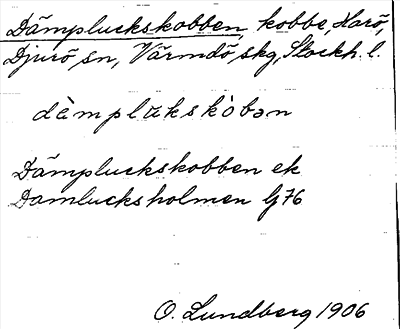 Dämpluckskobben, kobbe, Harö,
Djurö sn, Värmdö skg, Stockh. l.
dàmplukskòbən
Dämpluckskobben ek
Damlucksholmen Gj 76
O. Lundberg 1906